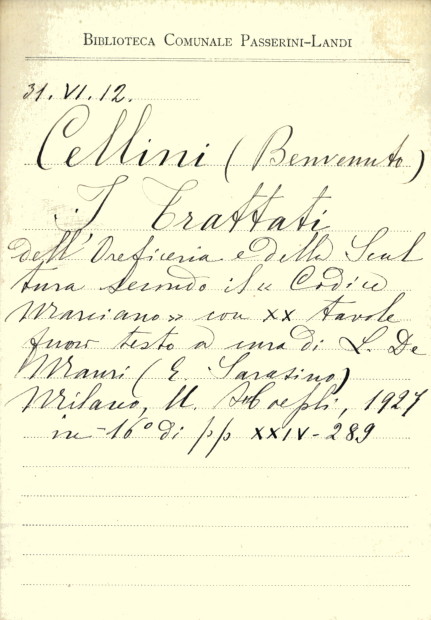 BIBLIOTECA COMUNALE PASSERINI-LANDI
31.VI.12.
Cellini (Benvenuto)
I Trattati
dell'Oreficeria e della Scul
tura secondo il « Codice
Marciano» con XX tavole
fuor testo a cura di L. De
Mauri (E. Sarasino)
Milano, U. Hoepli, 1927
in-16° di pp XXIV-289